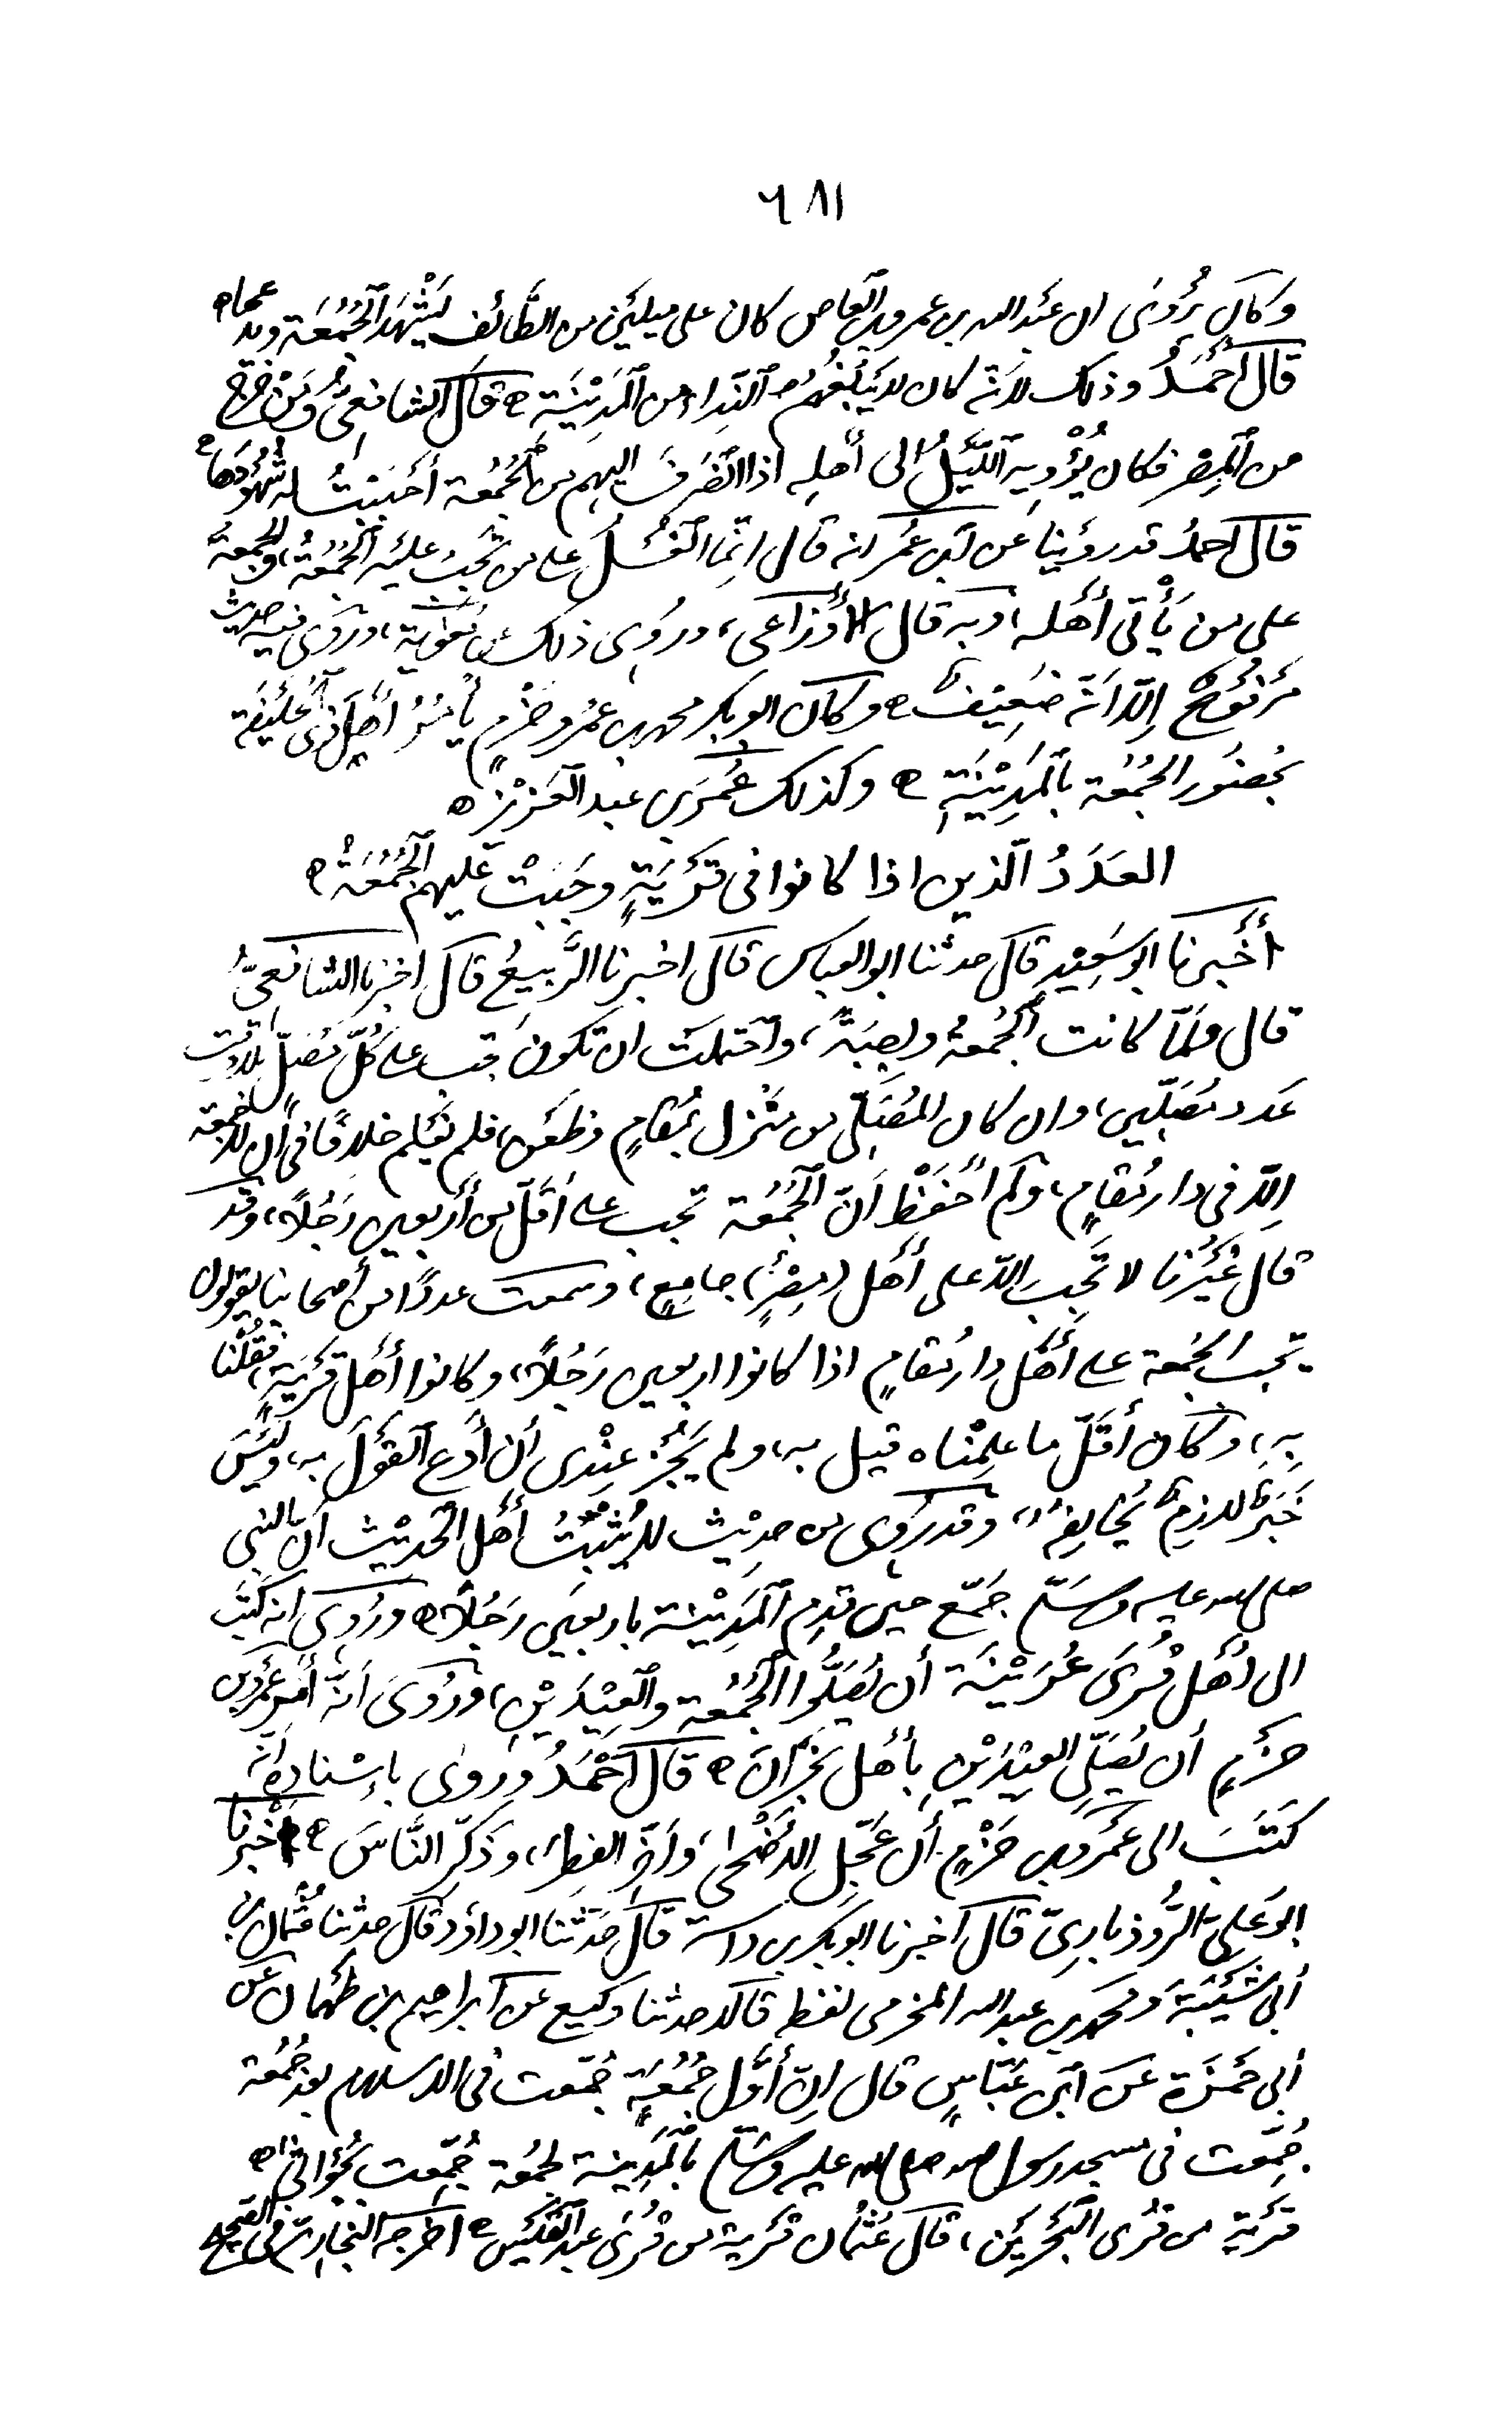 ٦٨١
وكان يُرْوَى ان عَبْد الله بن عمرو بن العاص كان على مِيلَيْن من الطَّائف ليَشْهَدُ الجُمُعَة ويدعها
قال أَحْمَدُ وذلك لأنّه كان لا يَبْلُغهُم النِّداء من المَدِيْنَةِ قال الشافعيُّ ومَنْ خرج
من المِصْر فكان يُؤْوِيهِ اللَّيْلُ الى أَهْلِه اذا انْصَرَفَ اليهم من الجُمُعة أَحْبَبْتُ له شُهُوْدَهَا
قال احمدُ قد رويْنا عن ابن عُمَر انه قال انَّما الغُسْلُ على من تَجِبُ عليه الجُمُعَةُ، والجمعةُ
على من يَأْتي أَهْلَه، وبه قال الأَوْزَاعى، ورُوِى ذلك عن مُعٰوِيَة، ورُوِى فيه حديث
مَرْفُوعٌ اِلّا اَنّه ضَعِيْفٌ وكان ابو بكر محمد بن عَمْرو حَزْمٍ يأمُرُ أَهْلَ ذى الحُلَيْفَة
بحُضُورِ الجُمُعَة بالمَدِيْنَةِ وكذلك عُمَرُ بن عبد العَزِيْزِ
العَدَدُ الّذين اذا كانوا فى قَرْيَةٍ وجَبَتْ عليهم الجُمُعَةُ
أَخْبرنا ابو سَعِيْدٍ قال حدثنا ابو العباس قال اخبرنا الرَّبِيعُ قال اخبرنا الشافعىُّ
قال ولمّا كانت الجُمُعةُ واجِبَةً، واحتملت ان تكون تجب على كُلِّ مُصَلٍّ بلا وقت
عَدد مُصَلِّين، وان كان المُصَلِّى من مَنْزِل بمُقامٍ وظَعَن، فلم نَعْلم خلافًا فى أن لا جمعة
اِلّا فى دار مُقامٍ، ولم أَحْفَظْ أَنّ الجُمُعَة تجب على أقَلّ من أربعين رَجُلًا، وقد
قال غَيْرُنا لا تَجِبُ الّا على أَهْل (مِصْرٍ) جامِعٍ، وسمعت عددًا من أصحابنا يقولون
تجبُ الجُمعة على أَهْل دار مُقامٍ اذا كانوا اربعين رَجُلًا، وكانوا أَهْل قَرْيَةٍ، فقُلْنا
بهِ، وكان أَقَلّ ما علِمْناه قيل به، ولم يَجُزْ عِنْدى أن أَدَع القَوْلَ به، ولَيْسَ
خَبَرٌ لازِمٌ يُخالِفُه، وقد رُوِى من حدِيْث لا يُثْبِتُ أَهْل الحَدِيْث أن النبى
صلى الله عليه وسلّم جَمّع حين قدِم المَدِيْنة باربعين رَجُلًا ورُوِى انه كَتَبَ
الى أَهْل قُرَى عُرَيْنَة أن يُصَلُّوا الجُمُعة والعِيْدَيْنِ، ورُوِىَ أنّه أمر عَمْرو بن
حَزْمٍ أن يُصَلِّى العِيْدَيْنِ بأَهْل نَجْرَانَ قال أَحْمَدُ وروى بإسْنادِه أنّه
كتَبَ الى عَمْرو بن حَزْمٍ أن عَجِّلِ الأضْحٰى، وأَخِّرِ الفِطْرَ، وذَكِّرِ النَّاسَ أَخْبرنا
ابو عَلىّ الرُّوذبارِىّ قال أخبرنا ابو بكر بن داسة قال حَدّثَنا ابو داوُد قال حدثنا عُثمان بن
أَبى شَيْبَةَ ومُحَمّد بن عبد الله المخرمى لفظه قالا حدثنا وكيع عن ابراهيم بن طَهْمان عن
أبى حَمْزَة عن ابن عَبَّاسٍ قال إِنّ أوَّل جُمُعَةٍ جُمّعت فى الاسلام بعد جُمُعة
جُمِّعت فى مسجد رسول الله صلى الله عليه وسَلّم بالمَدِينة لجُمُعَة جُمِّعت بجُوَاثَى
قَرْيَة من قُرى البَحْرَيْن، قال عُثْمان قَرْية من قُرَى عبد القَيْسِ أخرجه البخارىّ فى الصَّحِيح